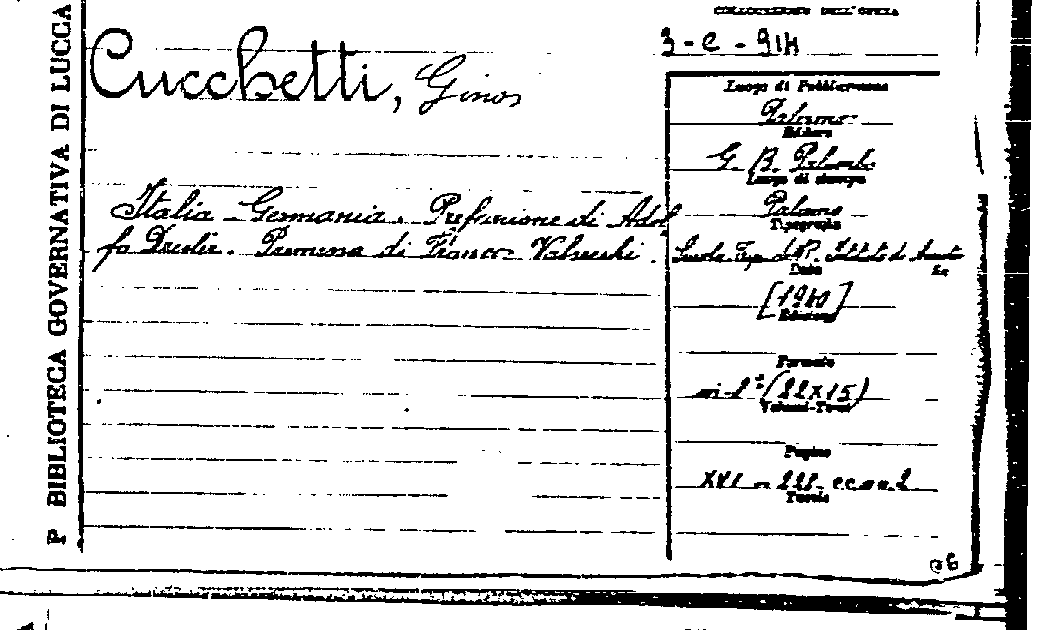 P BIBLIOTECA GOVERNATIVA DI LUCCA
COLLOCAZIONE DELL'OPERA
3-C-914
Cucchetti, Gino
Italia Germania. Prefazione di Adol
fo Premessa di Franco
Luogo di Pubblicazione
Palermo
Editore
G. B. Palumbo
Luogo di stampa
Palermo
Tipografia
Scuola Tip.
Data
[1940]
Edizione
Formato
in-8° (22x15)
Volumi-Tomi
Pagine
XVI
Tavole